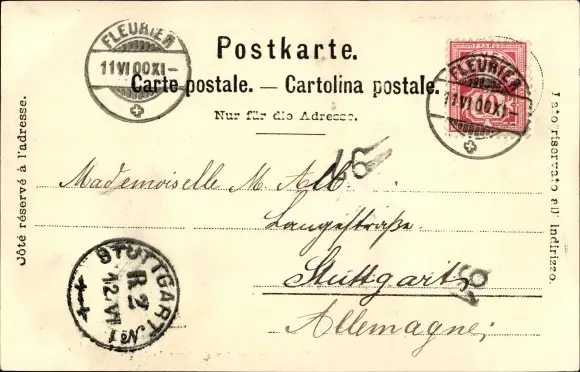 Postkarte.
Carte postale. — Cartolina postale.
Nur für die Adresse.
Côté réservé à l'adresse.
Lato riservato all' indirizzo.
FLEURIER
11 VI 00 XI —
FLEURIER
11 VI 00 XI —
Mademoiselle M. Alb.
Langestraße.
Stuttgart
Allemagne
STUTTGART № 1
R 2
12 VI